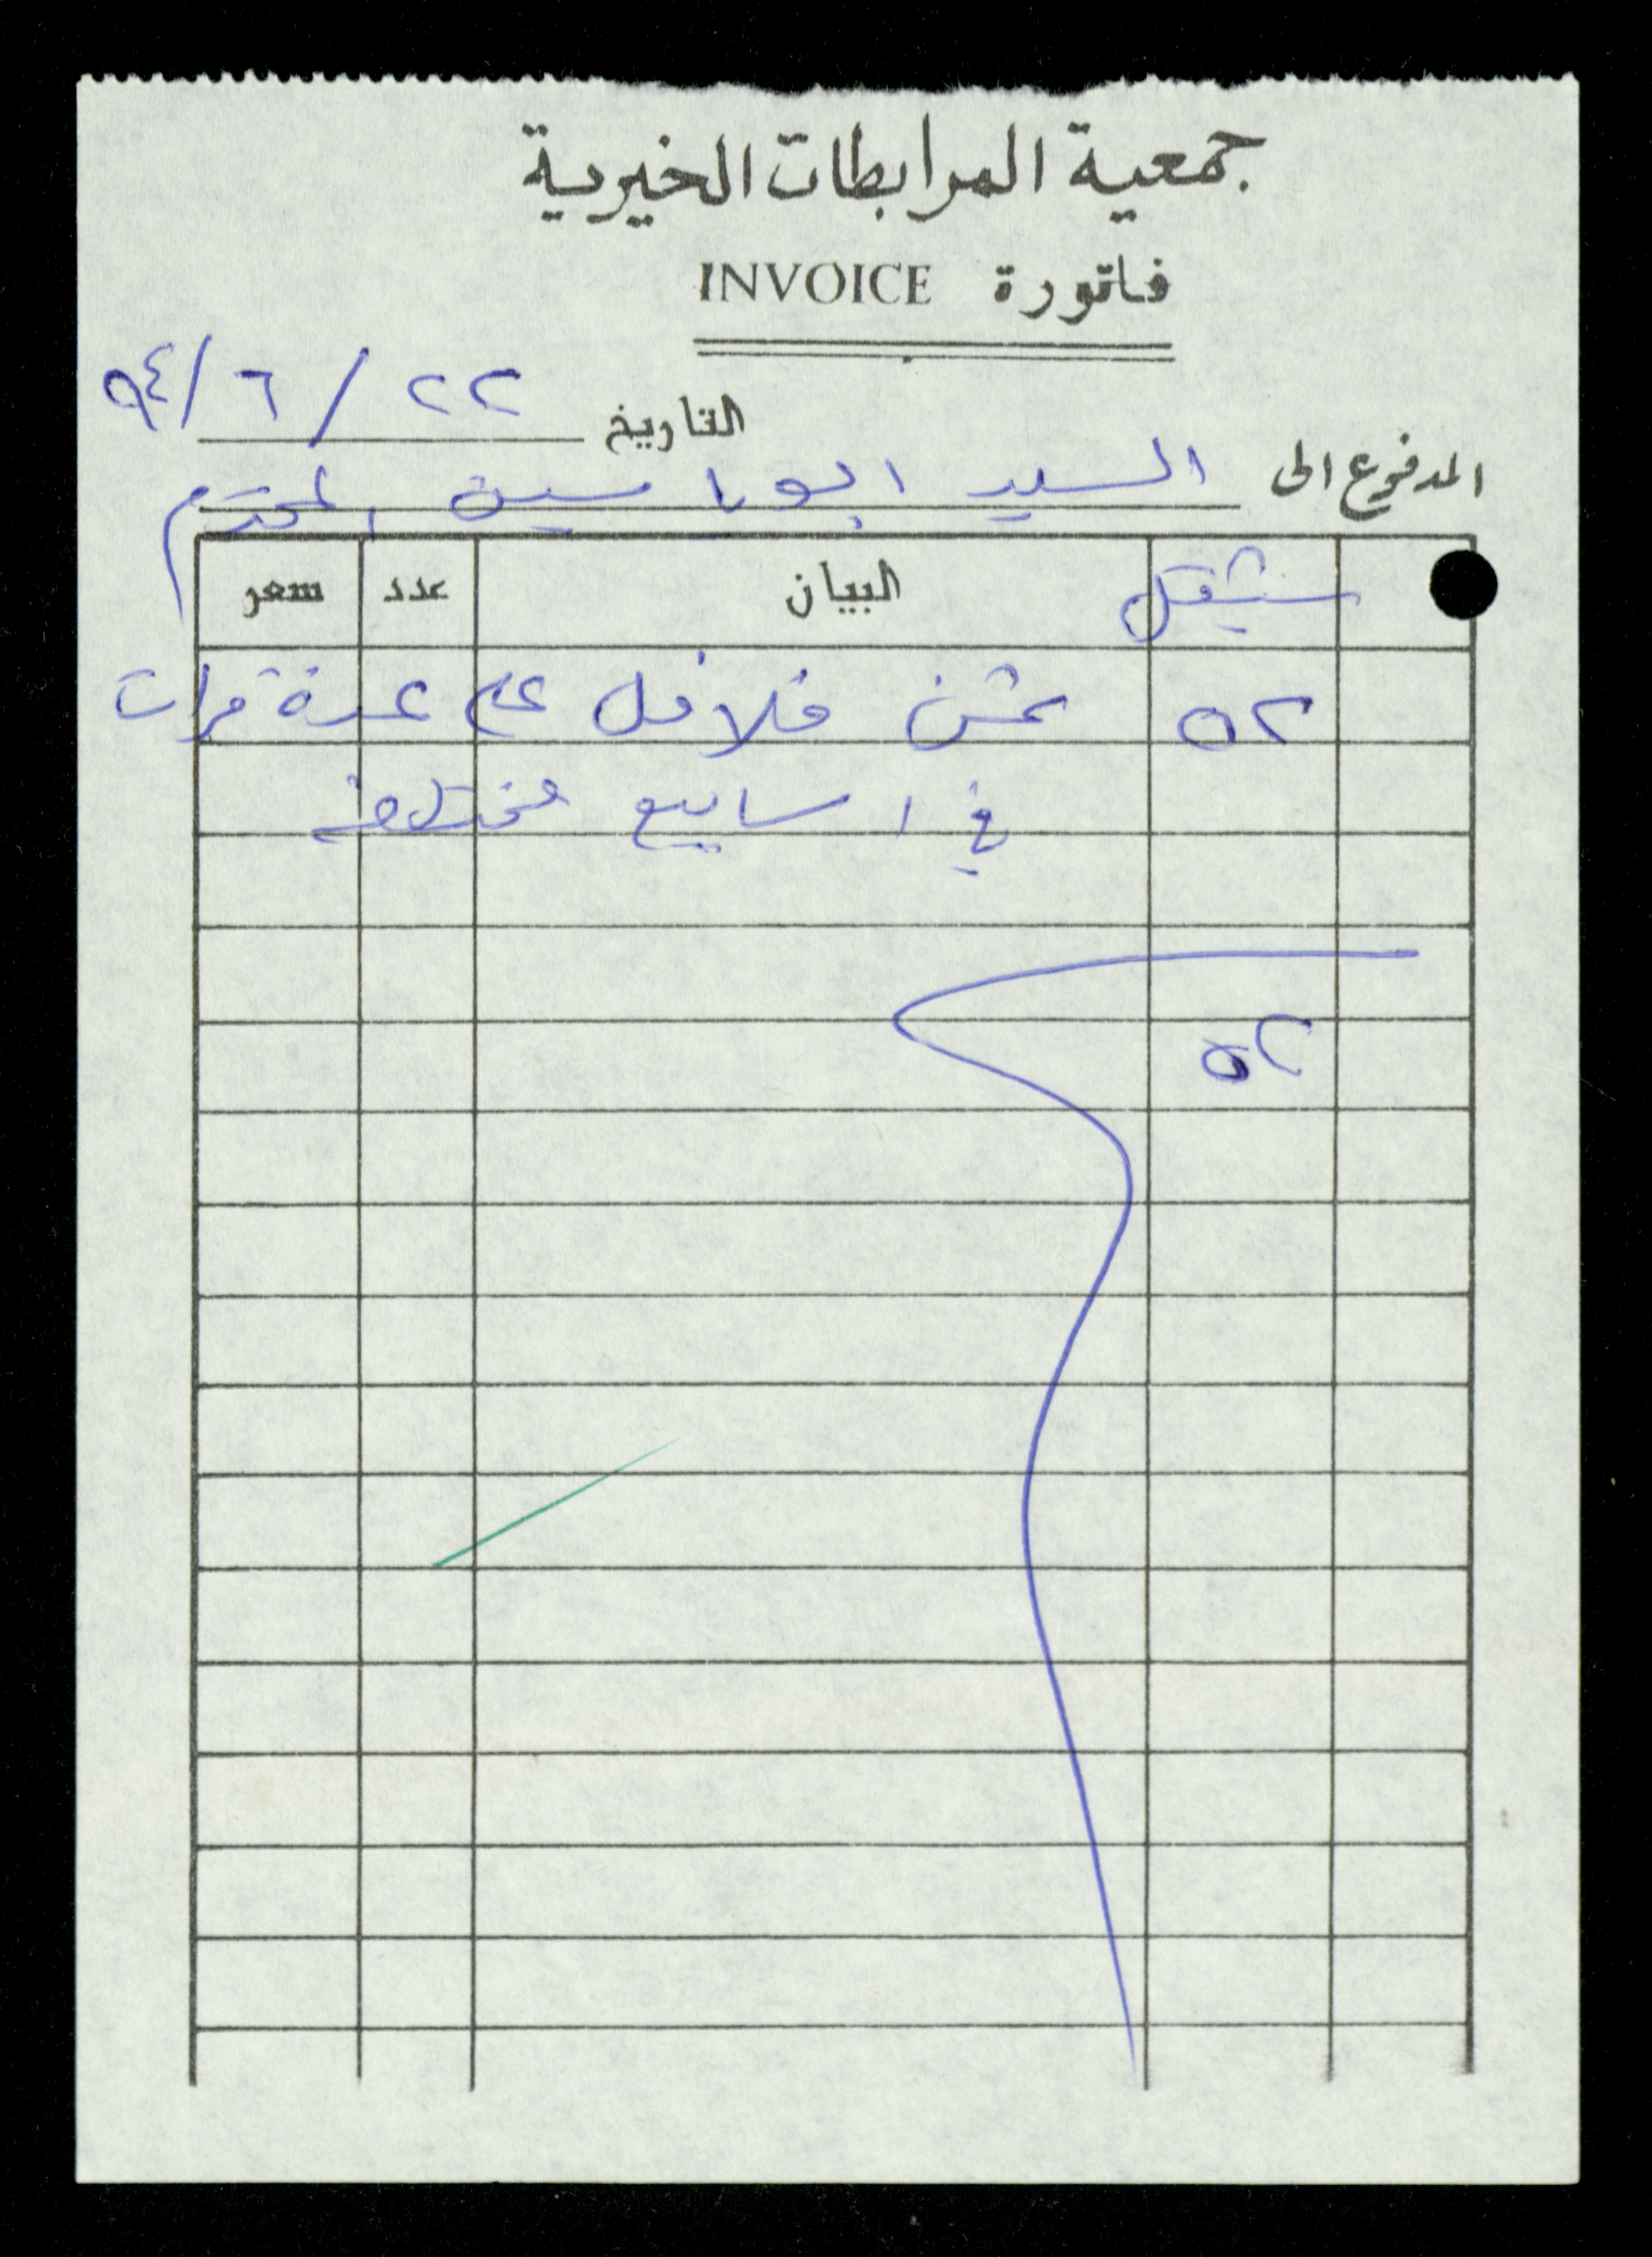 جمعية المرابطات الخيرية
فاتورة INVOICE
التاريخ ٢٢ / ٦ / ٩٤
المدفوع الى السيد ابو ياسين المحترم
شيقل البيان عدد سعر
٥٢ ثمن فلافل على عدة مرات
في اسابيع مختلفة
٥٢